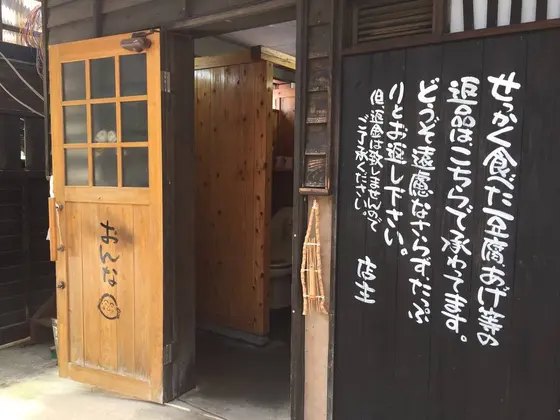 せっかく食べた豆腐あげ等の
返品はこちらで承わてます。
どうぞ遠慮なさらず、たっぷ
りとお返し下さい。
但、返金は致しませんので
ご了承ください。
店主
おんな